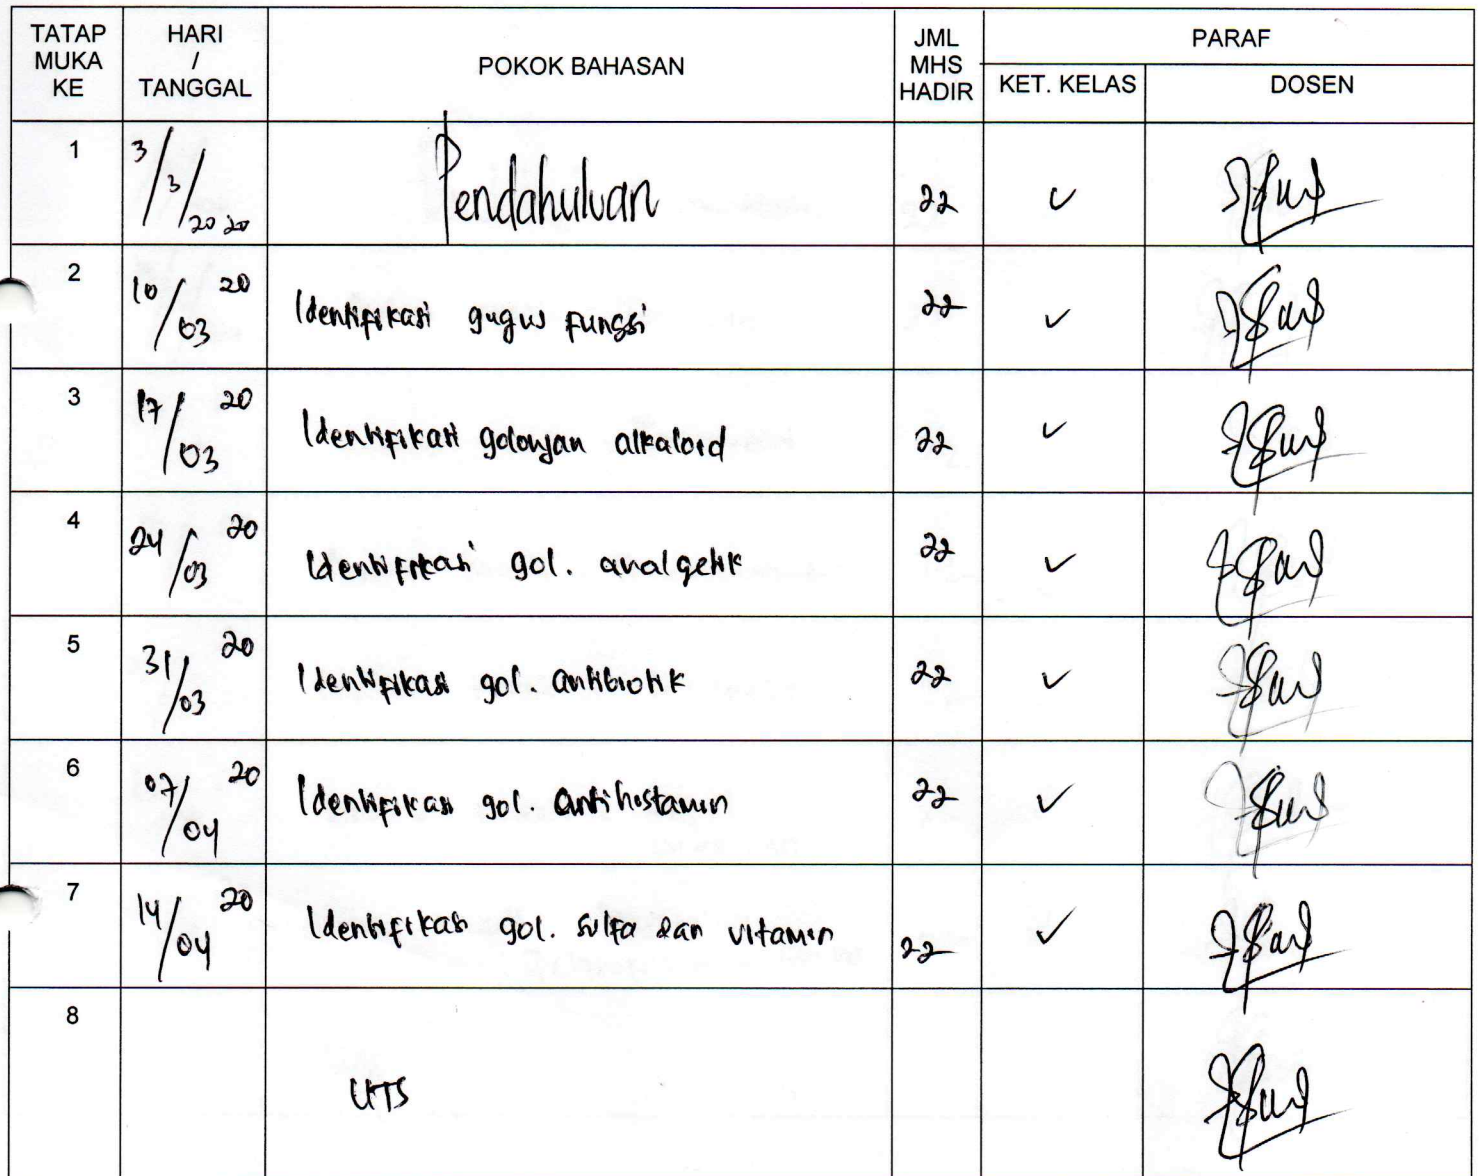 TATAP MUKA KE HARI / TANGGAL POKOK BAHASAN JML MHS HADIR PARAF
KET. KELAS DOSEN
1 3/3/2020 Pendahuluan 22 ✓
2 10/03 20 Identifikasi gugus fungsi 22 ✓
3 17/03 20 Identifikasi golongan alkaloid 22 ✓
4 24/03 20 Identifikasi gol. analgetik 22 ✓
5 31/03 20 Identifikasi gol. antibiotik 22 ✓
6 07/04 20 Identifikasi gol. antihistamin 22 ✓
7 14/04 20 Identifikasi gol. sulfa dan vitamin 22 ✓
8 UTS